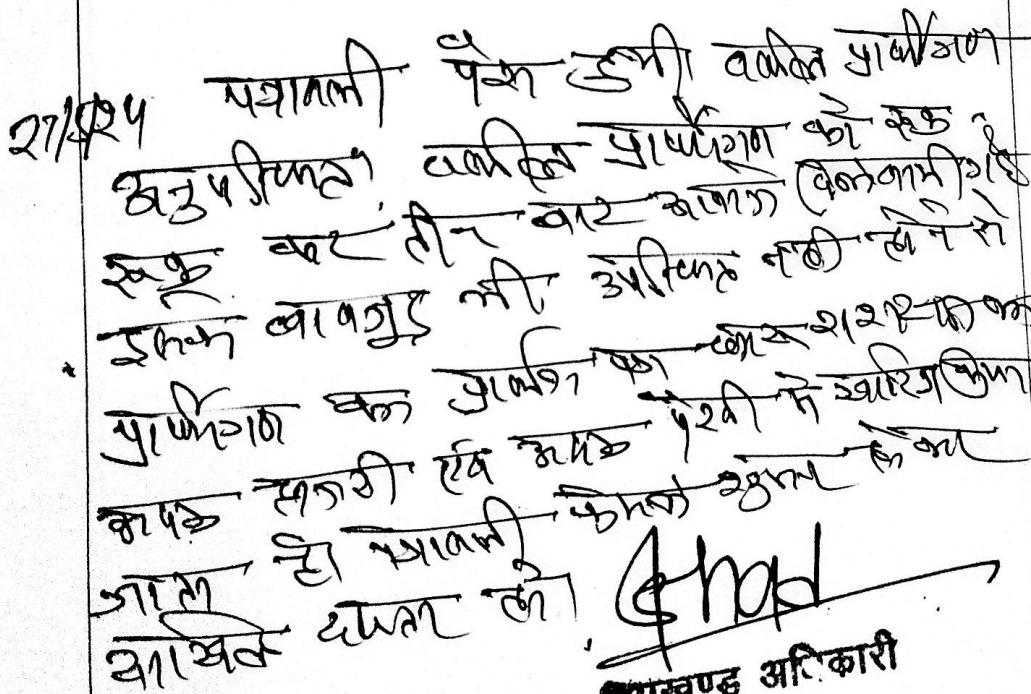 27/5/24 पत्रावली पेश हुयी। वकील प्रार्थीगण
अनुपस्थित। वकील प्रार्थीगण को एक
एक कर तीन बार आवाज दिलवायी गई
इसके बावजूद भी उपस्थित नही होने से
प्रार्थीगण का प्रार्थना पत्र
अदम हाजरी एवं अदम पैरवी मे खारिज किया
जाता है। पत्रावली फैसल शुमार होकर
दाखिल दफ्तर हो।
उपखण्ड अधिकारी